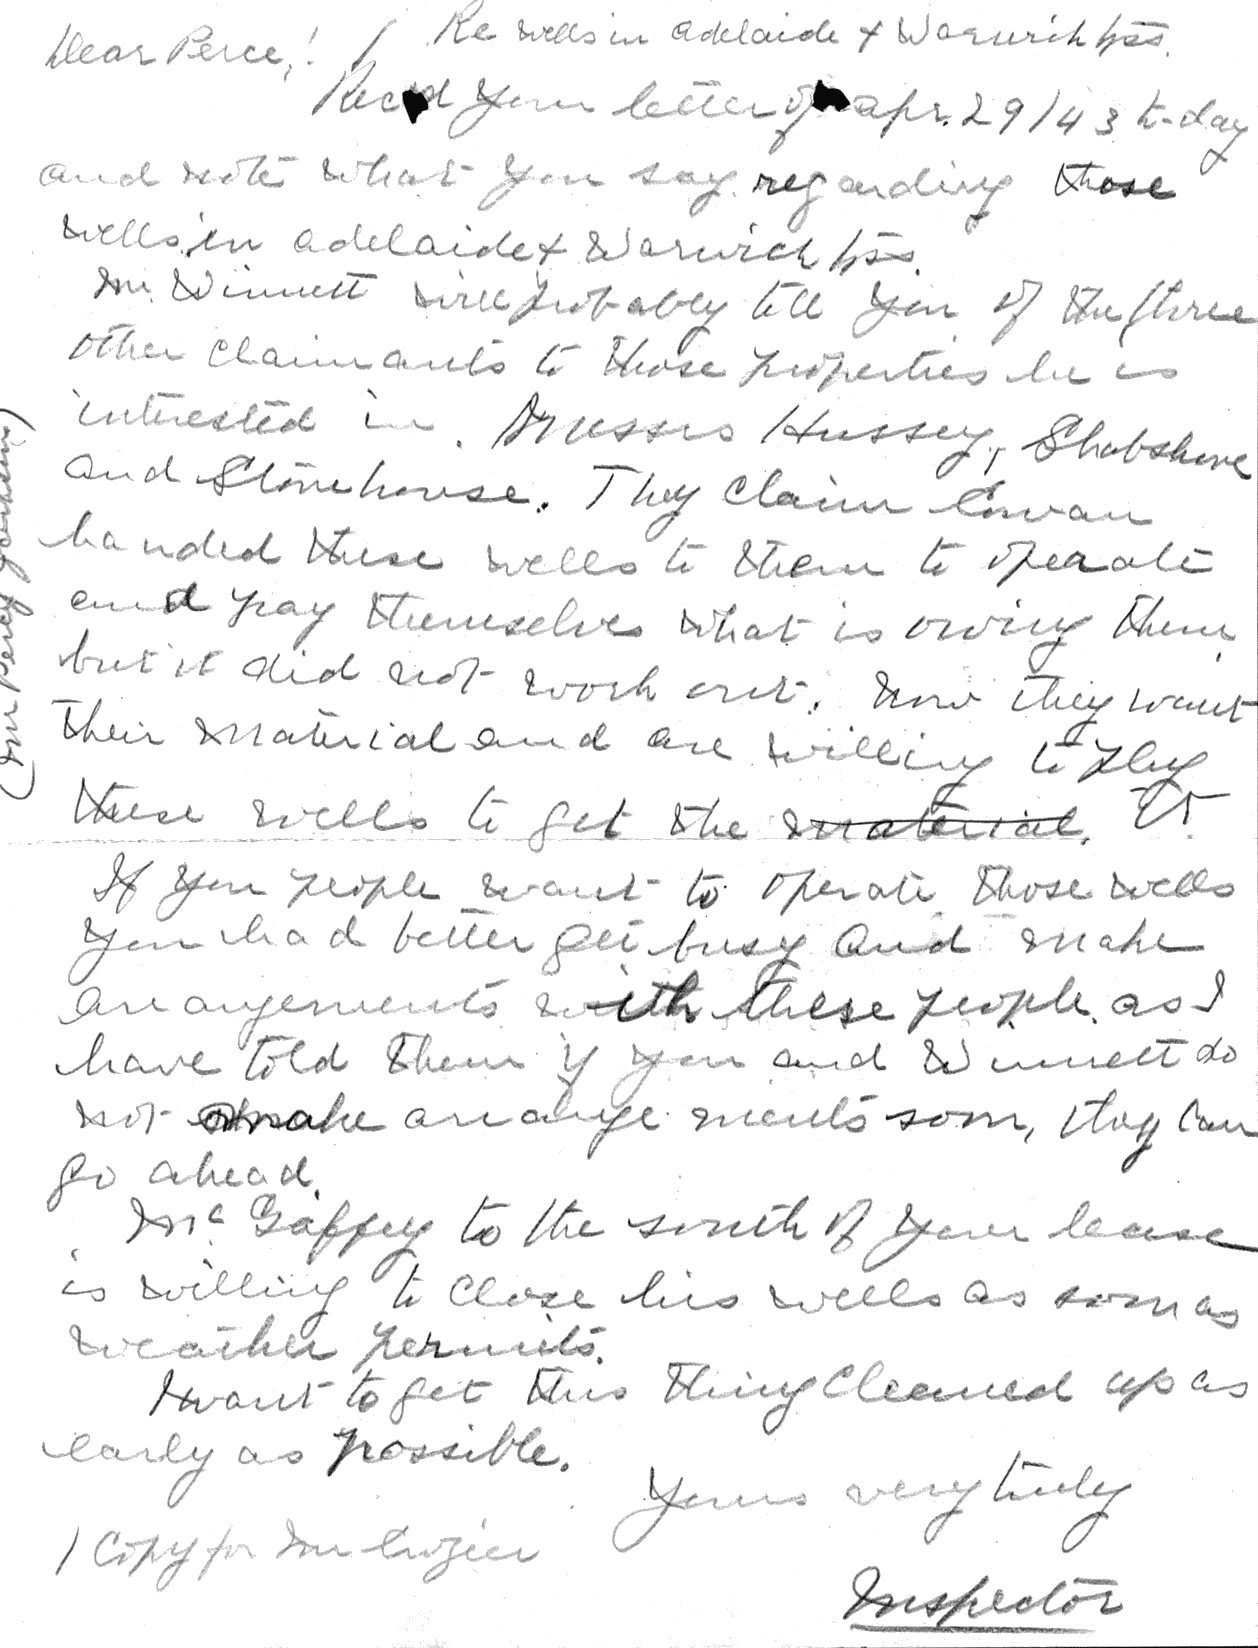 Dear Perce,! / Re wells in Adelaide & Warwick tps.
Rec'd your letter of Apr. 29/43 to-day
and note what you say regarding those
wells in Adelaide & Warwick tps.
Mr. Winnett will probably tell you of the three
other claimants to those properties he is
interested in. Messrs Hussey,
and Stonehouse. They claim Cowan
handed these wells to them to operate
and pay themselves what is owing them,
but it did not work out. Now they want
their material and are willing to plug
these wells to get the material.
If you people want to operate those wells
you had better get busy and make
arrangements with these people as I
have told them if you and Winnett do
not make arrangements soon, they can
go ahead.
Mc Gaffey to the south of your lease
is willing to close his wells as soon as
weather permits.
I want to get this thing cleaned up as
early as possible.
Yours very truly
1 Copy for Mr Crozier
Inspector
(Mr Percy